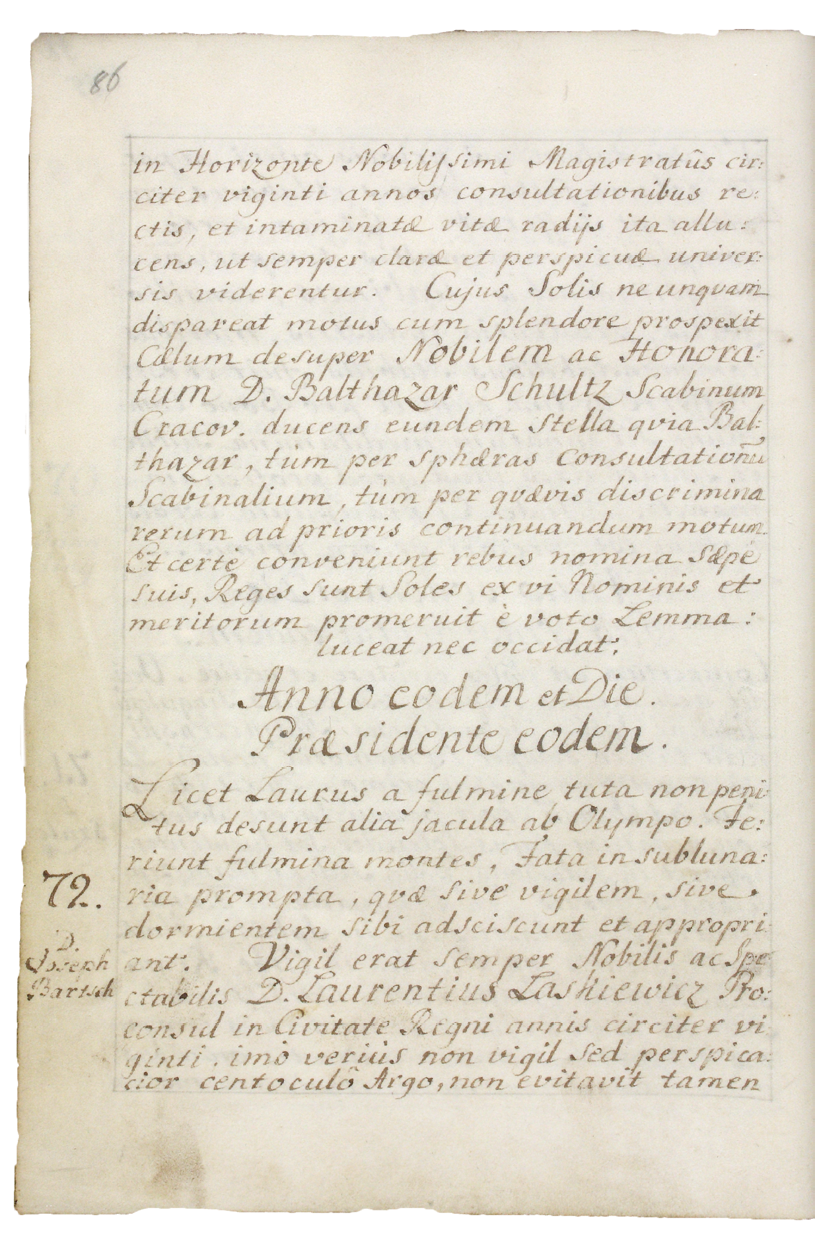 86
in Horizonte Nobilissimi Magistratûs cir:
citer viginti annos consultationibus re:
ctis, et intaminatæ vitæ radijs ita allu:
cens, ut semper claræ et perspicuæ univer:
sis viderentur. Cujus Solis ne unquam
dispareat motus cum splendore prospexit
Cælum desuper Nobilem ac Honora:
tum D. Balthazar Schultz Scabinum
Cracov. ducens eundem stella qvia Bal:
thazar, tùm per sphæras Consultationū
Scabinalium, tùm per qvævis discrimina
rerum ad prioris continuandum motum.
Et certè conveniunt rebus nomina sæpè
suis, Reges sunt Soles ex vi Nominis et
meritorum promeruit è voto Lemma:
luceat nec occidat.
Anno eodem et Die.
Præsidente eodem.
Licet Laurus a fulmine tuta non peni
tus desunt alia jacula ab Olympo. Fe:
riunt fulmina montes, Fata in subluna:
72.
ria prompta, qvæ sive vigilem, sive
dormientem sibi adsciscunt et appropri
D.
Joseph
Bartsch
ant. Vigil erat semper Nobilis ac Spe
ctabilis D. Laurentius Laskiewicz Pro:
consul in Civitate Regni annis circiter vi
ginti, imò veriùs non vigil sed perspica:
cior centoculô Argo, non evitavit tamen